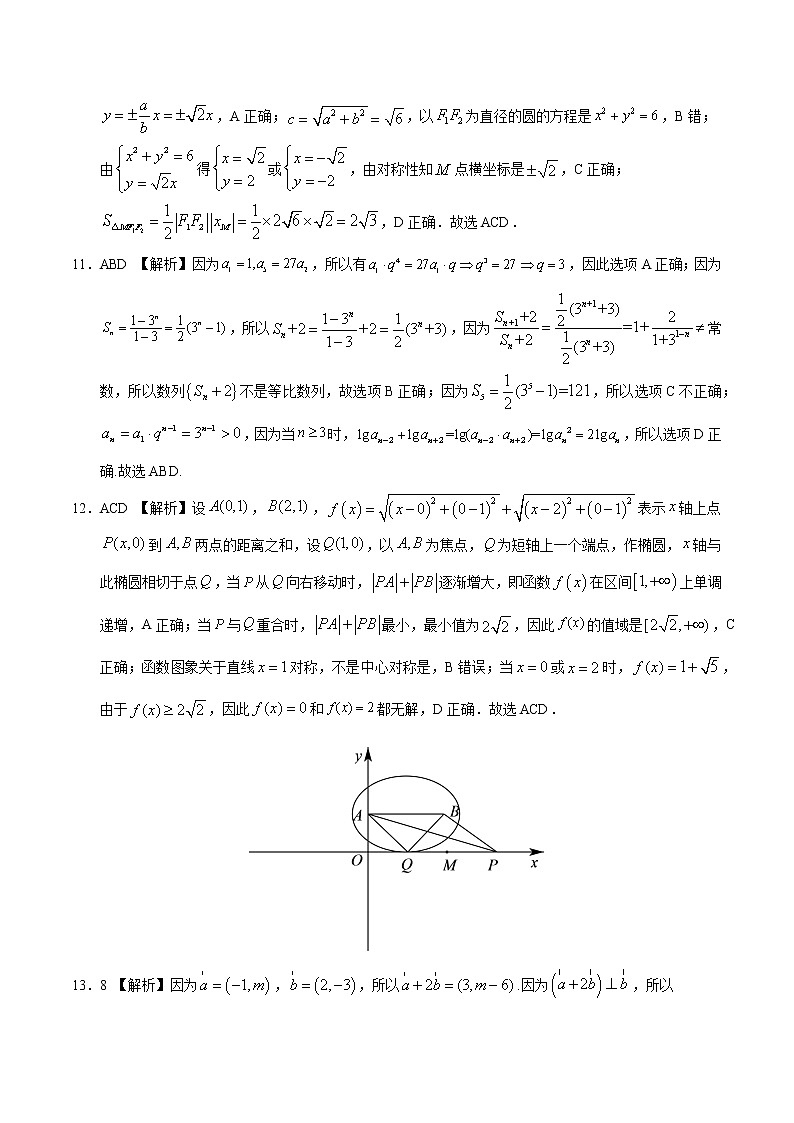 y = ±(a/b)x = ±√2x，A 正确；c = √(a² + b²) = √6，以 F₁F₂ 为直径的圆的方程是 x² + y² = 6，B 错；
由 {x² + y² = 6, y = √2x 得 {x = √2, y = 2 或 {x = −√2, y = −2，由对称性知 M 点横坐标是 ±√2，C 正确；
S△MF₁F₂ = 1/2|F₁F₂||x_M| = 1/2 × 2√6 × √2 = 2√3，D 正确．故选 ACD．
11．ABD 【解析】因为 a₁ = 1, a₅ = 27a₂，所以有 a₁·q⁴ = 27a₁·q ⇒ q³ = 27 ⇒ q = 3，因此选项 A 正确；因为
Sₙ = (1−3ⁿ)/(1−3) = 1/2(3ⁿ −1)，所以 Sₙ+2 = (1−3ⁿ)/(1−3) +2 = 1/2(3ⁿ+3)，因为 (Sₙ₊₁+2)/(Sₙ+2) = (1/2(3ⁿ⁺¹+3))/(1/2(3ⁿ+3)) =1+ 2/(1+3¹⁻ⁿ) ≠ 常
数，所以数列{Sₙ + 2}不是等比数列，故选项 B 正确；因为 S₅ = 1/2(3⁵ −1)=121，所以选项 C 不正确；
aₙ = a₁·qⁿ⁻¹ = 3ⁿ⁻¹ > 0，因为当 n ≥ 3 时，lgaₙ₋₂ + lgaₙ₊₂ =lg(aₙ₋₂·aₙ₊₂)=lgaₙ² = 2lgaₙ，所以选项 D 正
确.故选 ABD.
12．ACD 【解析】设 A(0,1)，B(2,1)，f(x) = √((x−0)² + (0−1)²) + √((x−2)² + (0−1)²) 表示 x 轴上点
P(x,0) 到 A,B 两点的距离之和，设 Q(1,0)，以 A,B 为焦点，Q 为短轴上一个端点，作椭圆，x 轴与
此椭圆相切于点 Q，当 P 从 Q 向右移动时，|PA| + |PB| 逐渐增大，即函数 f(x) 在区间[1,+∞) 上单调
递增，A 正确；当 P 与 Q 重合时，|PA| + |PB| 最小，最小值为 2√2，因此 f(x) 的值域是[2√2,+∞)，C
正确；函数图象关于直线 x = 1 对称，不是中心对称是，B 错误；当 x = 0 或 x = 2 时，f(x) = 1+ √5，
由于 f(x) ≥ 2√2，因此 f(x) = 0 和 f(x) = 2 都无解，D 正确．故选 ACD．
y
A
B
O
Q
M
P
x
13．8 【解析】因为 a = (−1,m)，b = (2,−3)，所以 a + 2b = (3,m − 6) .因为 (a+2b) ⊥ b，所以